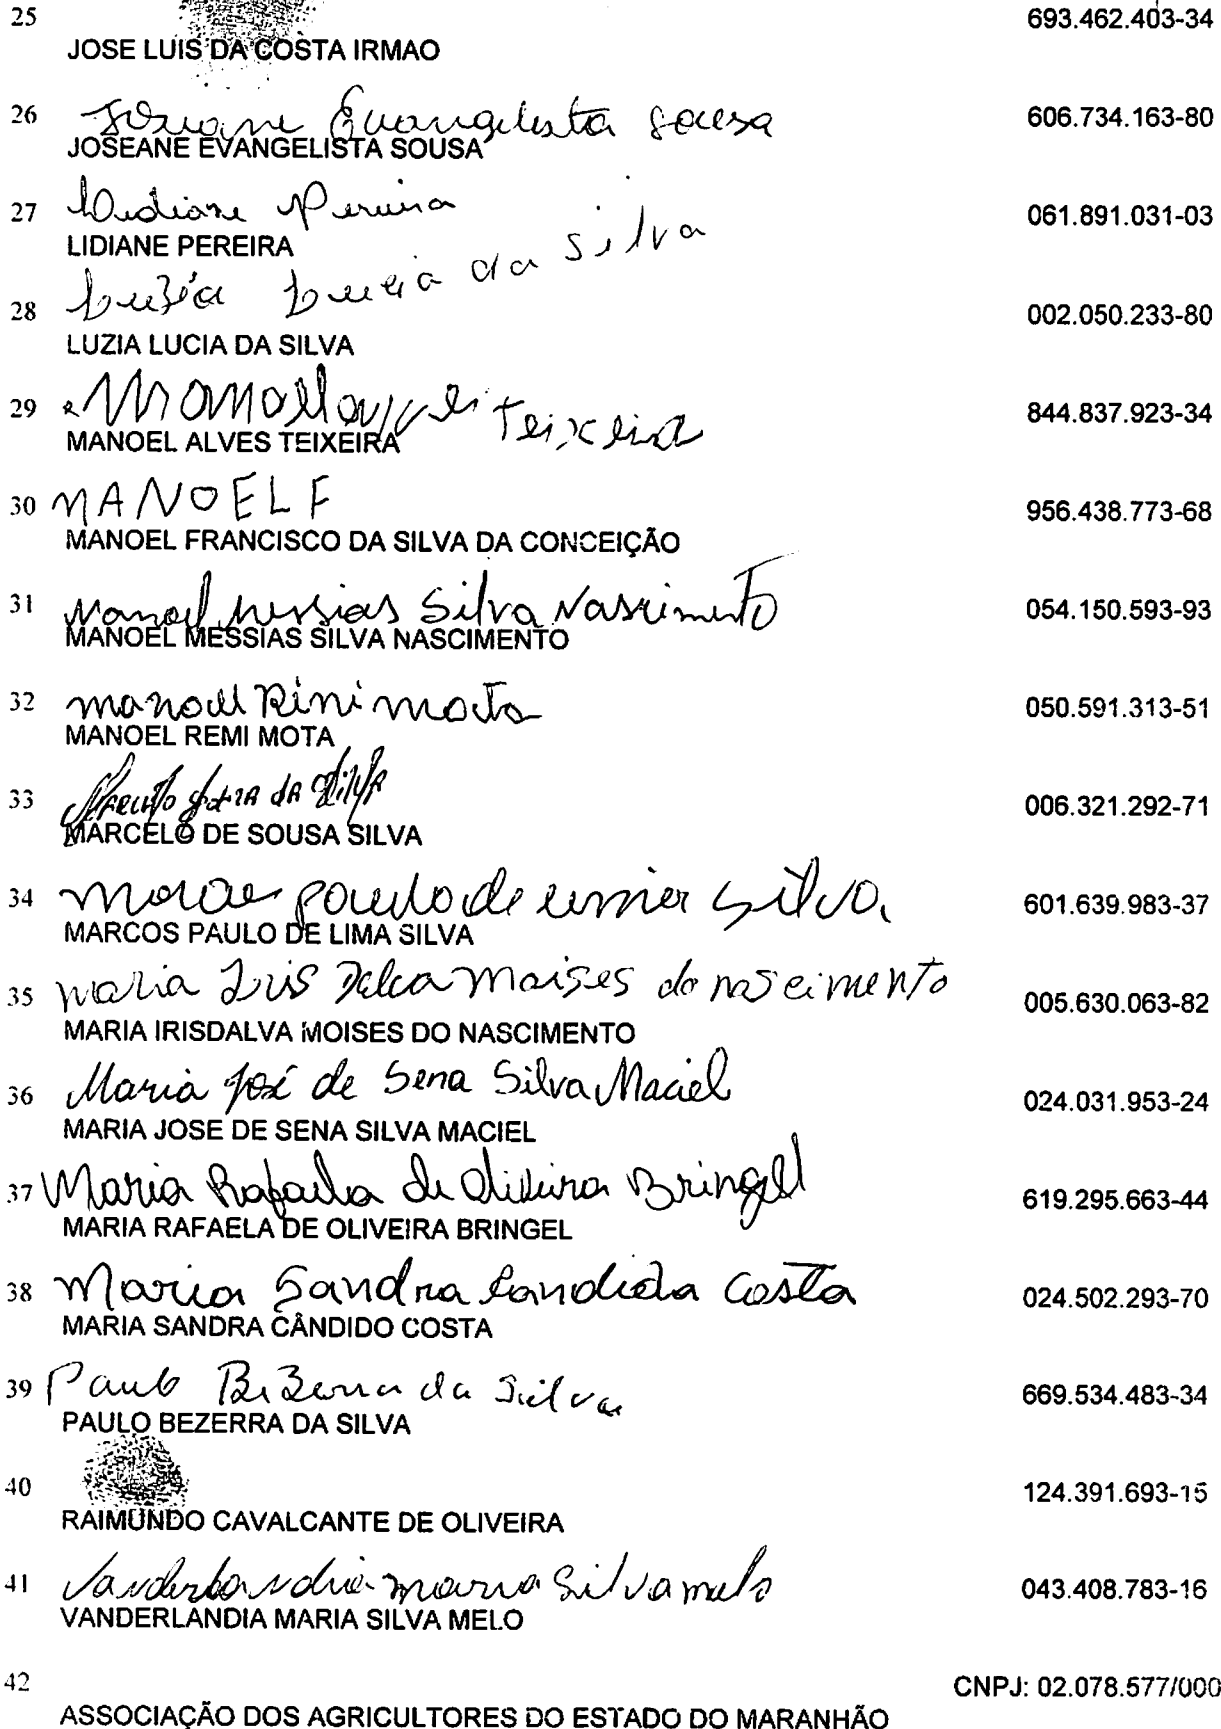 25 693.462.403-34
JOSE LUIS DA COSTA IRMAO
26 Joseane Evangelista Sousa 606.734.163-80
JOSEANE EVANGELISTA SOUSA
27 Lidiane Pereira 061.891.031-03
LIDIANE PEREIRA
28 Luzía Lucia da Silva 002.050.233-80
LUZIA LUCIA DA SILVA
29 Manoel Teixeira 844.837.923-34
MANOEL ALVES TEIXEIRA
30 MANOEL F 956.438.773-68
MANOEL FRANCISCO DA SILVA DA CONCEIÇÃO
31 Manoel Messias Silva Nascimento 054.150.593-93
MANOEL MESSIAS SILVA NASCIMENTO
32 manoel Rimi mota 050.591.313-51
MANOEL REMI MOTA
33 da Silva 006.321.292-71
MARCELO DE SOUSA SILVA
34 paulo de Silva 601.639.983-37
MARCOS PAULO DE LIMA SILVA
35 maria Iris Dalva moises do nascimento 005.630.063-82
MARIA IRISDALVA MOISES DO NASCIMENTO
36 Maria José de Sena Silva Maciel 024.031.953-24
MARIA JOSE DE SENA SILVA MACIEL
37 Maria Rafaela de Oliveira Bringel 619.295.663-44
MARIA RAFAELA DE OLIVEIRA BRINGEL
38 Maria Sandra Candida Costa 024.502.293-70
MARIA SANDRA CÂNDIDO COSTA
39 Paulo Bezerra da Silva 669.534.483-34
PAULO BEZERRA DA SILVA
40 124.391.693-15
RAIMUNDO CAVALCANTE DE OLIVEIRA
41 Vanderlandia maria Silva melo 043.408.783-16
VANDERLANDIA MARIA SILVA MELO
42 CNPJ: 02.078.577/000
ASSOCIAÇÃO DOS AGRICULTORES DO ESTADO DO MARANHÃO